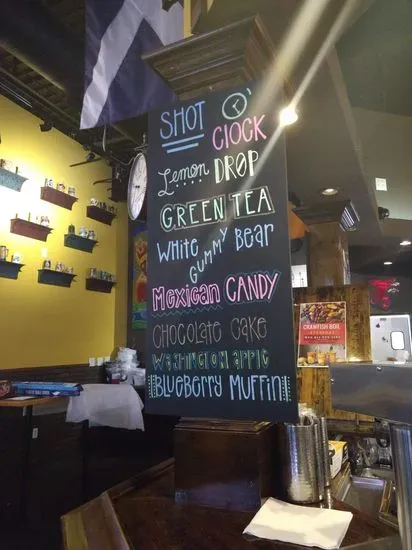 SHOT
O'
CLOCK
Lemon DROP
GREEN TEA
WHITE GUMMY BEAR
MEXICAN CANDY
CHOCOLATE CAKE
WASHINGTON APPLE
BLUEBERRY MUFFIN
CRAWFISH BOIL